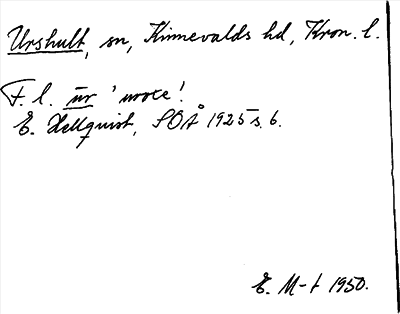 Urshult, sn, Kinnevalds hd, Kron. l.
F. l. ūr 'uroxe'.
E. Hellquist, SOÅ 1925 s. 6.
E. M-t 1950.